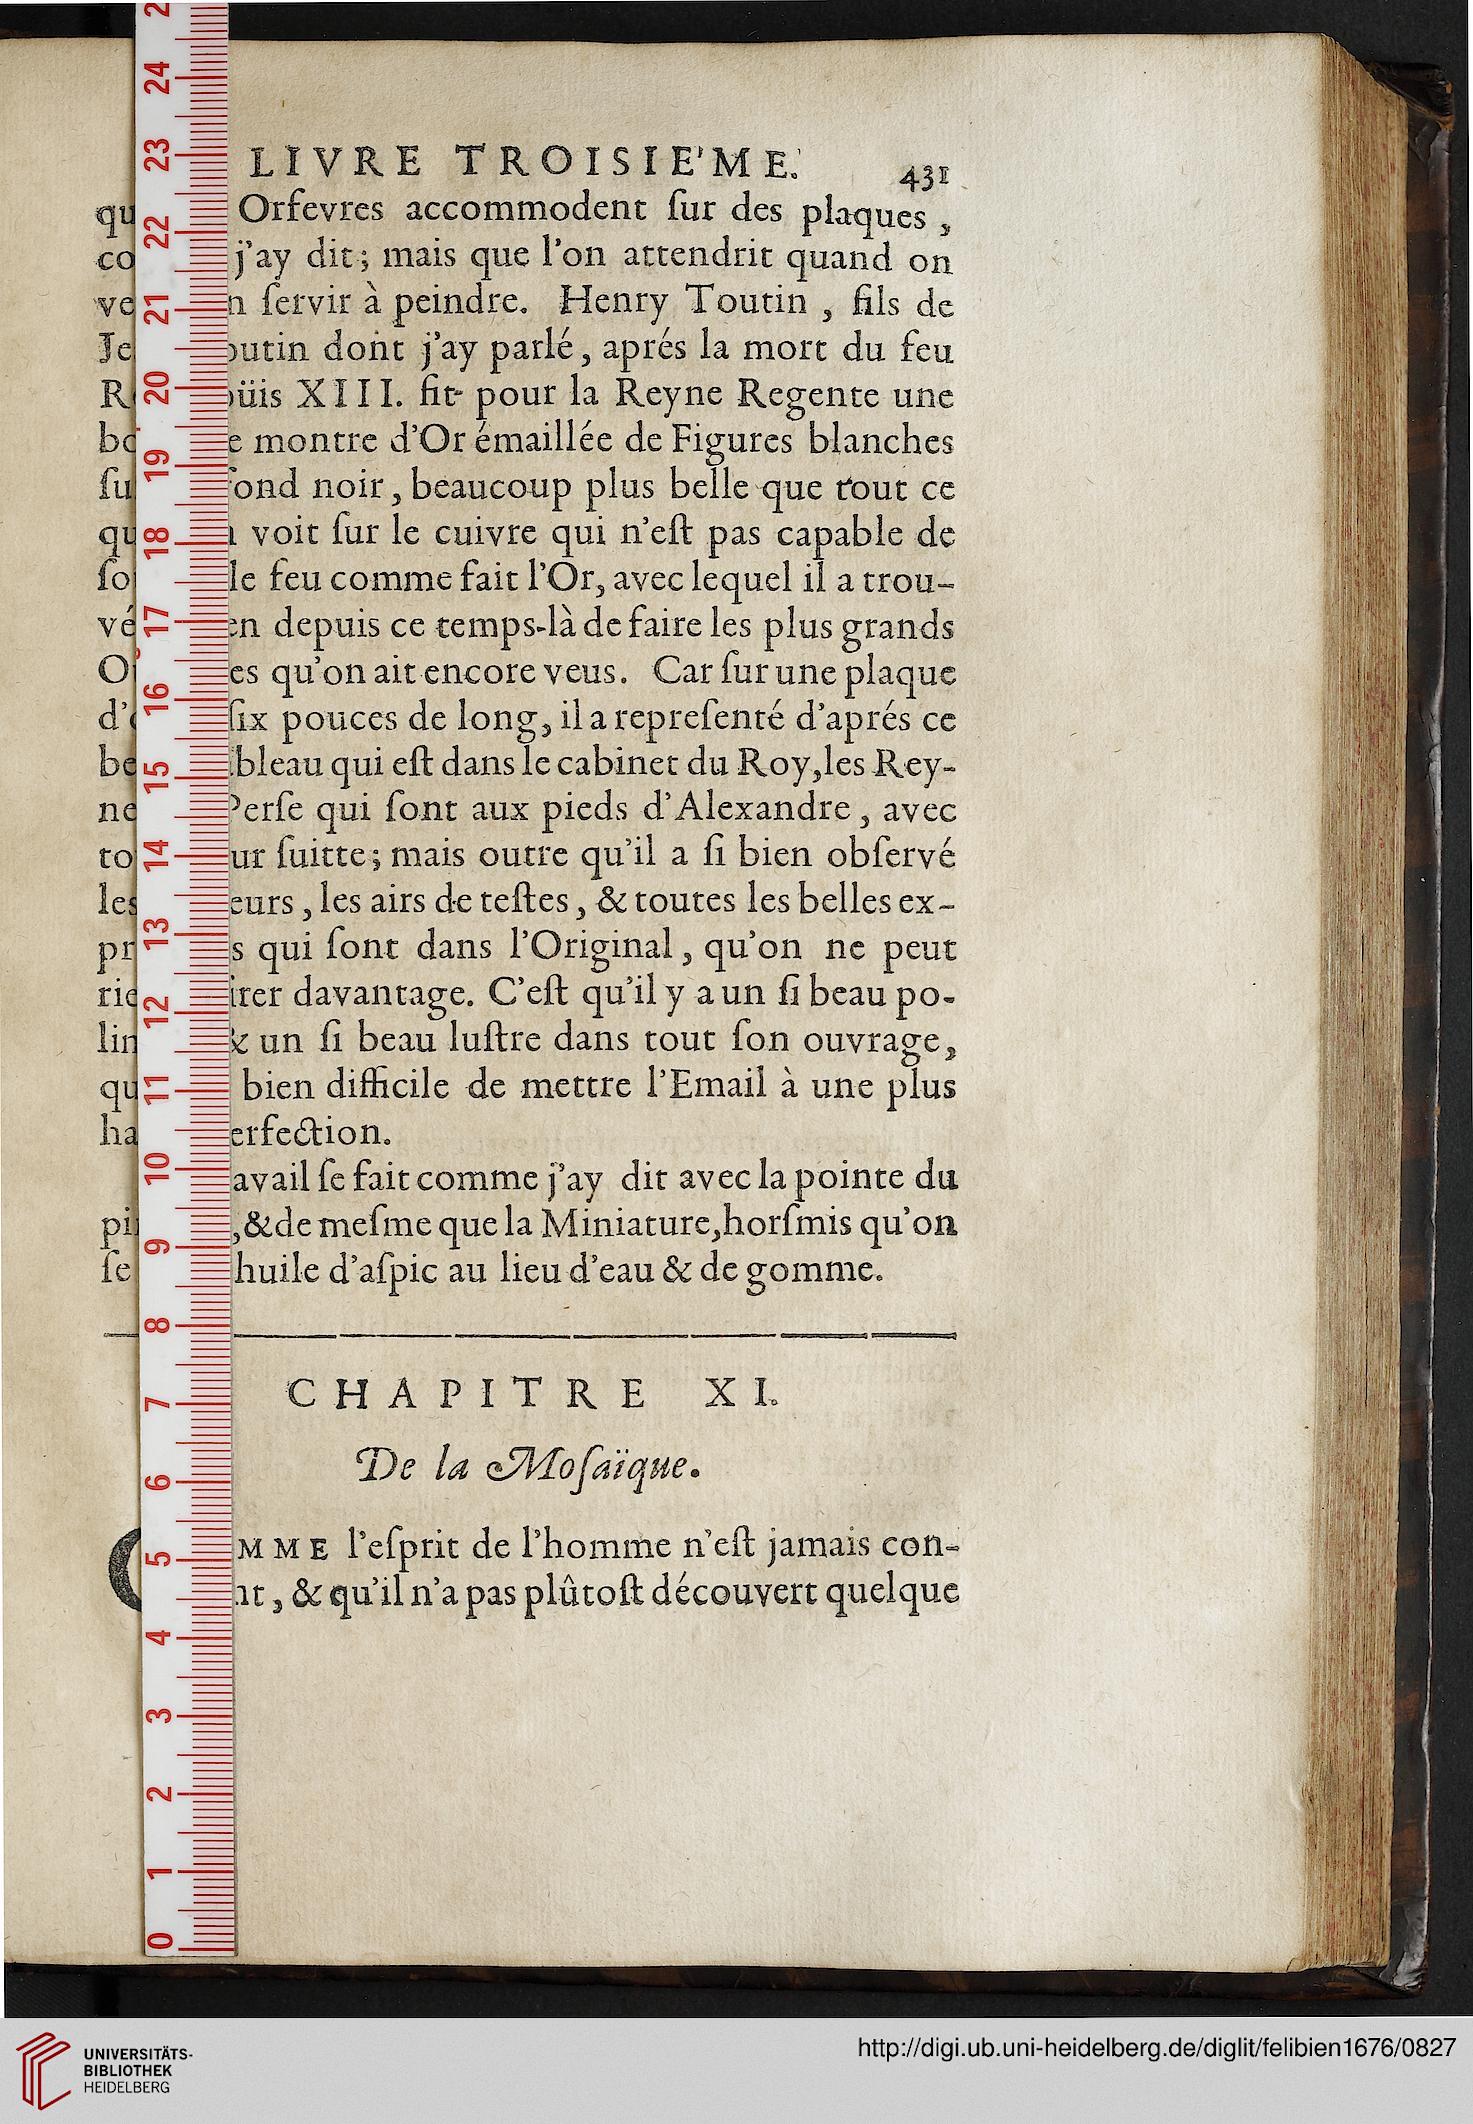 LIVRE TROISIE'ME. 431
Orfevres accommodent ſur des plaques,
j'ay dit; mais que l'on attendrit quand on
ſervir à peindre. Henry Toutin, fils de
dont j'ay parlé, aprés la mort du feu
XIII. fit pour la Reyne Regente une
montre d'Or émaillée de Figures blanches
noir, beaucoup plus belle que tout ce
voit ſur le cuivre qui n'eſt pas capable de
le feu comme fait l'Or, avec lequel il a trou-
depuis ce temps-là de faire les plus grands
qu'on ait encore veus. Car ſur une plaque
ſix pouces de long, il a repreſenté d'aprés ce
qui eſt dans le cabinet du Roy, les Rey-
Perſe qui ſont aux pieds d'Alexandre, avec
ſuitte; mais outre qu'il a ſi bien obſervé
les airs de teſtes, & toutes les belles ex-
qui ſont dans l'Original, qu'on ne peut
davantage. C'eſt qu'il y a un ſi beau po-
& un ſi beau luſtre dans tout ſon ouvrage,
bien difficile de mettre l'Email à une plus
ſe fait comme j'ay dit avec la pointe du
, & de meſme que la Miniature, horſmis qu'on
huile d'aſpic au lieu d'eau & de gomme.
CHAPITRE XI.
De la Moſaïque.
l'eſprit de l'homme n'eſt jamais con-
, & qu'il n'a pas plûtoſt découvert quelque
24
23
22
21
20
19
18
17
16
15
14
13
12
11
10
9
8
7
6
5
4
3
2
1
0
UNIVERSITÄTS-
BIBLIOTHEK
HEIDELBERG
http://digi.ub.uni-heidelberg.de/diglit/felibien1676/0827